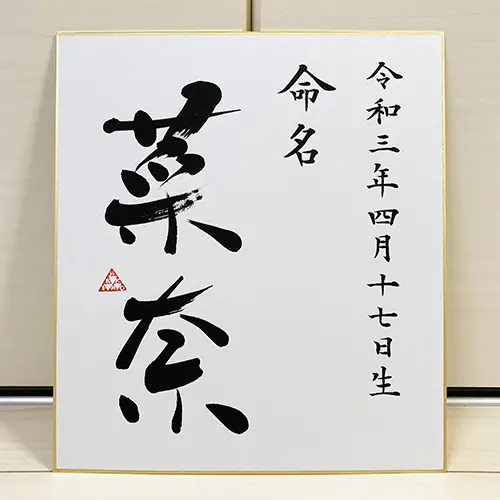 令和三年四月十七日生
命名
菜奈